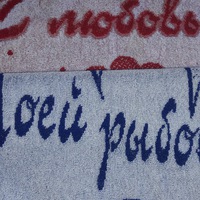 С любовь
Моей рыбо